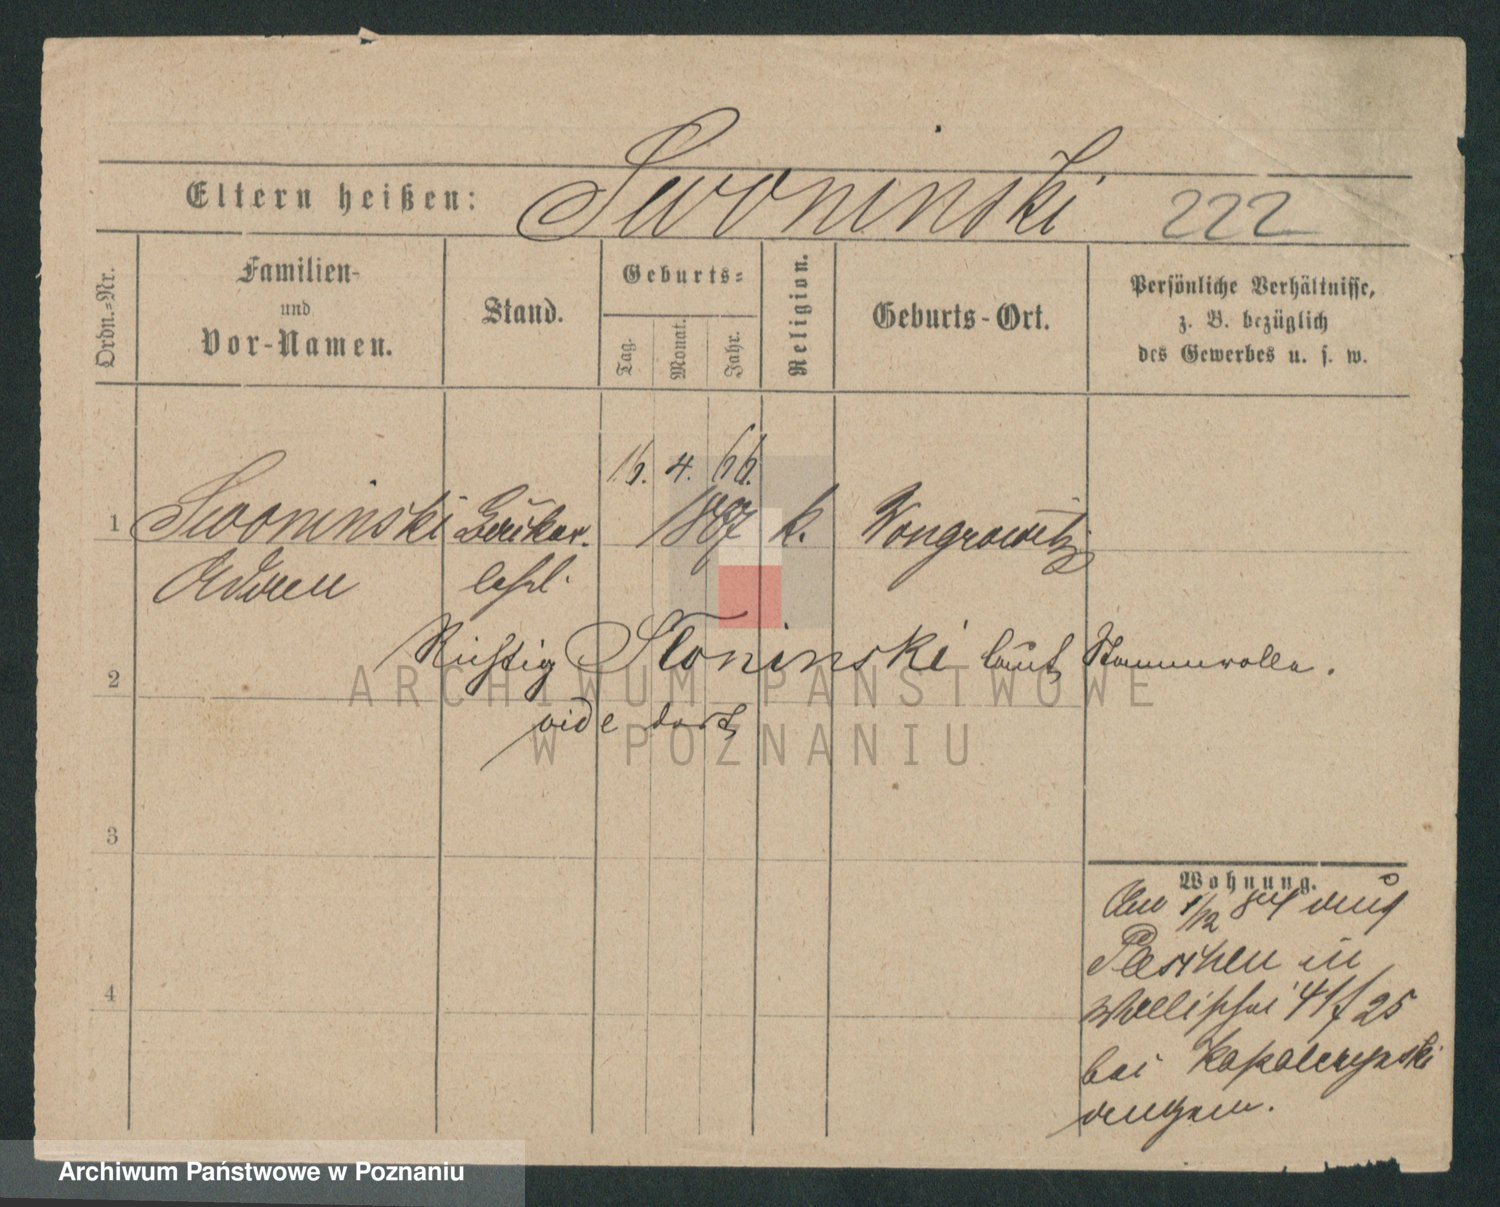 Eltern heißen: Swoninski 222
Ordn.=Nr.
Familien-
und
Vor-Namen.
Stand.
Geburts=
Tag.
Monat.
Jahr.
Religion.
Geburts-Ort.
Persönliche Verhältnisse,
z. B. bezüglich
des Gewerbes u. s. w.
16. 4. 66.
1 Swoninski 1867 k. Wongrowitz
lehrl.
Richtig Sloninski laut Stammrolle.
2
vide dort
3
Wohnung.
1/12 84 aus
Pleschen in
41/25
4
bei
anzem.
ARCHIWUM PAŃSTWOWE
W POZNANIU
Archiwum Państwowe w Poznaniu